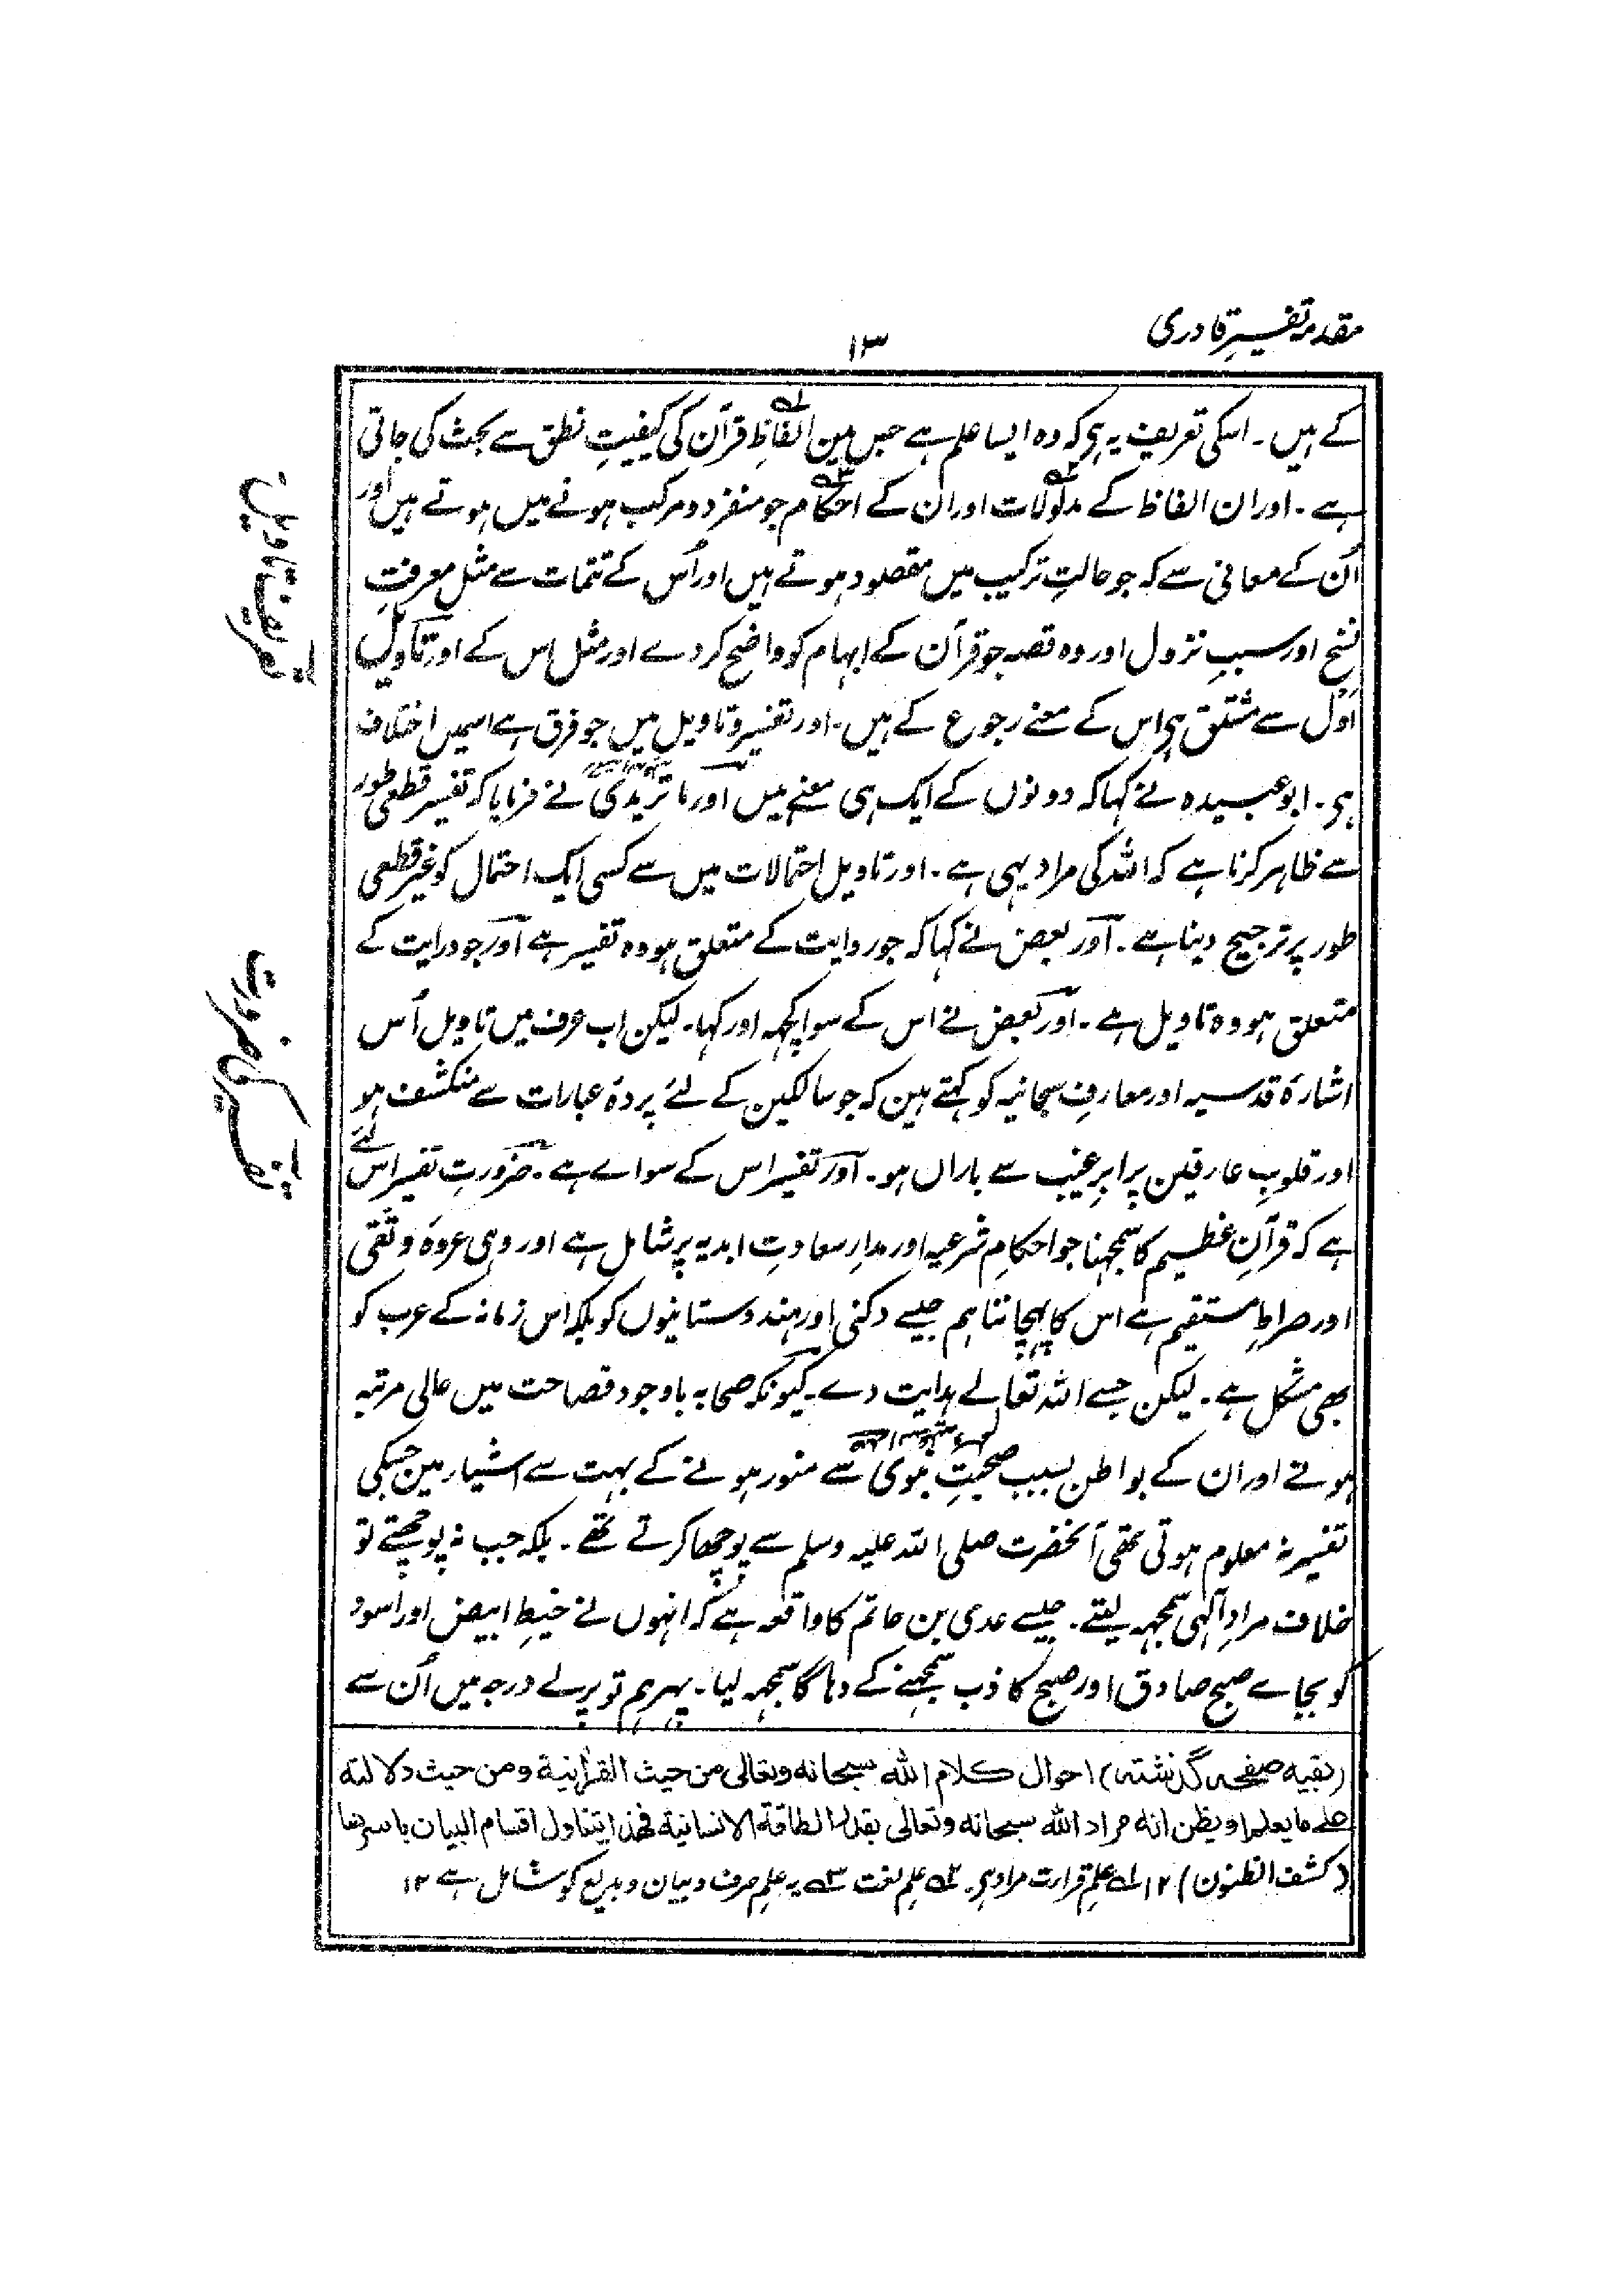 مقدمہ تفسیر قادری
۱۳
کے ہیں ۔ اسکی تعریف یہ ہی کہ وہ ایسا علم ہے جس مین الفاظِ قرآن کی کیفیتِ نطق سے بحث کی جاتی
ہے ۔ اور ان الفاظ کے مدلولات اور ان کے احکام جو منفرد و مرکب ہونے میں ہوتے ہیں اور
اُن کے معانی سے کہ جو حالتِ ترکیب میں مقصود ہوتے ہیں اور اُس کے تتمات سے مثل معرفتِ
نسخ اور سببِ نزول اور وہ قصہ جو قرآن کے ابہام کو واضح کردے اور مثل اس کے اور تاویل
اَوْل سے مشتق ہی اس کے معنے رجوع کے ہیں ۔ اور تفسیر و تاویل میں جو فرق ہے اسمیں اختلاف
ہی ۔ ابوعبیدہ نے کہا کہ دونوں کے ایک ہی معنے ہیں اور ماتریدی نے فرمایا کہ تفسیر قطعی طور
سے ظاہر کرنا ہے کہ اللہ کی مراد یہی ہے ۔ اور تاویل احتمالات میں سے کسی ایک احتمال کو غیر قطعی
طور پر ترجیح دینا ہے ۔ اور بعض نے کہا کہ جو روایت کے متعلق ہو وہ تفسیر ہے اور جو درایت کے
متعلق ہو وہ تاویل ہے ۔ اور بعض نے اس کے سوا کچھہ اور کہا ۔ لیکن اب عرف میں تاویل اُس
اشارۂ قدسیہ اور معارفِ سبحانیہ کو کہتے ہین کہ جو سالکین کے لئے پردۂ عبارات سے منکشف ہو
اور قلوبِ عارفین پر ابرِ غیب سے باراں ہو ۔ اور تفسیر اس کے سواے ہے ۔ ضرورتِ تفسیر اس لئے
ہے کہ قرآنِ عظیم کا سمجہنا جو احکامِ شرعیہ اور مدارِ سعادتِ ابدیہ پر شامل ہے اور وہی عروۂ وثقی
اور صراطِ مستقیم ہے اس کا پہچاننا ہم جیسے دکنی اور ہندوستانیوں کو بلکہ اس زمانہ کے عرب کو
بھی مشکل ہے ۔ لیکن جسے اللہ تعالے ہدایت دے ۔ کیونکہ صحابہ باوجود فصاحت میں عالی مرتبہ
ہونے اور ان کے بواطن بسبب صحبتِ نبوی سے منور ہونے کے بہت سے اشیار مین جسکی
تفسیر نہ معلوم ہوتی تھی آنحضرت صلی اللہ علیہ وسلم سے پوچھا کرتے تھے ۔ بلکہ جب نہ پوچھتے تو
خلاف مرادِ آلہی سمجہہ لیتے ۔ جیسے عدی بن حاتم کا واقعہ ہے کہ انہوں نے خیطِ ابیض اور اسود
کو بجاے صبح صادق اور صبح کاذب سمجہنے کے دہاگا سمجہہ لیا ۔ پہر ہم تو پرلے درجہ میں اُن سے
(بقیہ صفحہ گذشتہ) احوال کلام اللہ سبحانہ وتعالی من حیث القرآنیة ومن حیث دلالتہ
علے مایعلم او یظن انہ مراد اللہ سبحانہ وتعالی بقدر الطاقة الانسانیة فھذا یتناول اقسام البیان باسرھا
(کشف الظنون) ۱۲ ۱ے علم قرارت مراد ہی ۔ ۲ے علمِ لغت ۳ے یہ علمِ صرف و بیان و بدیع کو شامل ہے ۱۲
تعریف تاویل
تفسیر کی ضرورت